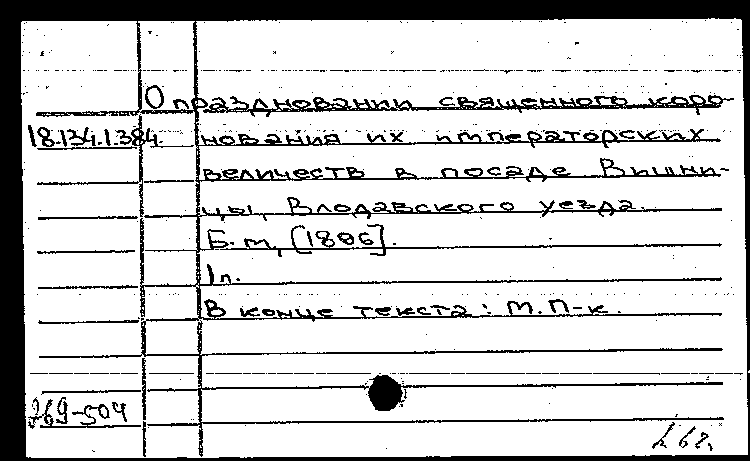 О праздновании священного коро-
18.134.1.384. нования их императорских
величеств в посаде Вишни-
цы, Влодавского уезда.
Б.м, [1896].
1л.
В конце текста: М.П-к.
269-504